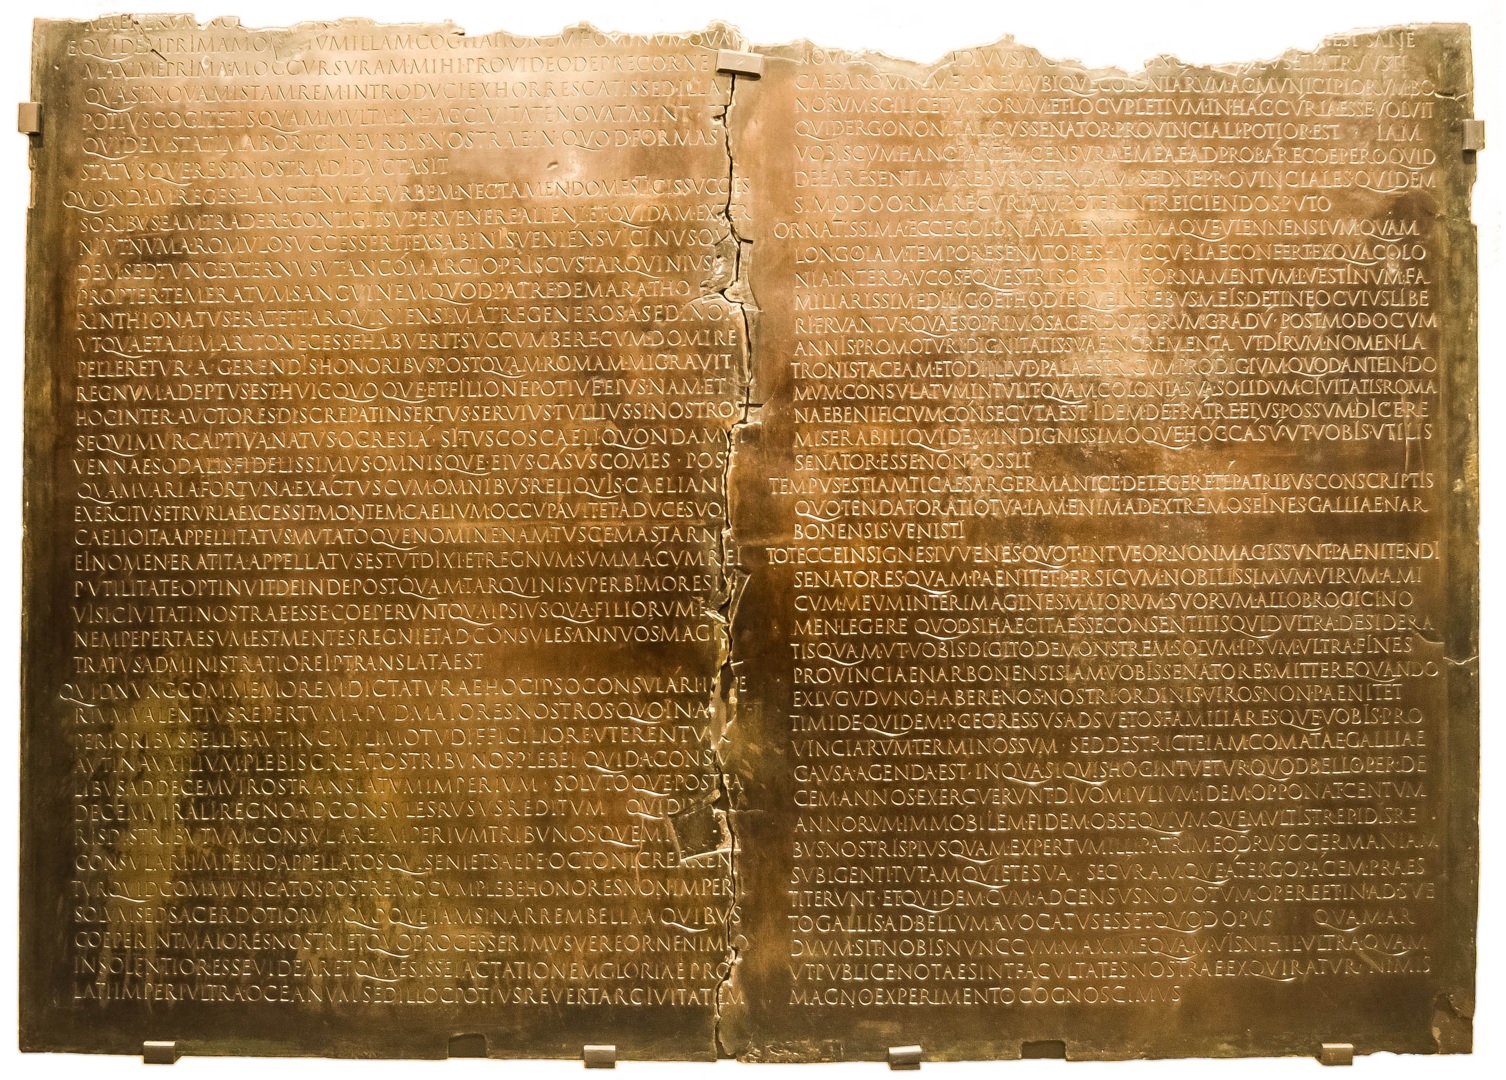 MAE RERVM NO
EQVIDEM PRIMAM OMNIVM ILLAM COGITATIONEM HOMINVM QVAM
MAXIME PRIMAM OCCVRSVRAM MIHI PROVIDEO DEPRECOR NE
QVASI NOVAM ISTAM REM INTRODVCI EXHORRESCATIS SED ILLA
POTIVS COGITETIS QVAM MVLTA IN HAC CIVITATE NOVATA SINT
QVIDEM STATIM AB ORIGINE VRBIS NOSTRAE IN QVOD FORMAS
STATVSQVE RES P NOSTRA DIDVCTA SIT
QVONDAM REGES HANC TENVERE VRBEM NEC TAMEN DOMESTICIS SVCCES
SORIBVS EAM TRADERE CONTIGIT SVPERVENERE ALIENI ET QVIDAM EXTER
NI VT NVMA ROMVLO SVCCESSERIT EX SABINIS VENIENS VICINVS QVI
DEM SED TVNC EXTERNVS VT ANCO MARCIO PRISCVS TARQVINIVS
PROPTER TEMERATVM SANGVINEM QVOD PATRE DEMARATHO
RINTHIO NATVS ERAT ET TARQVINIENSI MATRE GENEROSA SED INOPI
VT QVAE TALI MARITO NECESSE HABVERIT SVCCVMBERE CVM DOMI RE
PELLERETVR A GERENDIS HONORIBVS POSTQVAM ROMAM MIGRAVIT
REGNVM ADEPTVS EST HVIC QVOQVE ET FILIO NEPOTIVE EIVS NAM ET
HOC INTER AVCTORES DISCREPAT INSERTVS SERVIVS TVLLIVS SI NOSTROS
SEQVIMVR CAPTIVA NATVS OCRESIA SI TVSCOS CAELI QVONDAM VI
VENNAE SODALIS FIDELISSIMVS OMNISQVE EIVS CASVS COMES POST
QVAM VARIA FORTVNA EXACTVS CVM OMNIBVS RELIQVIS CAELIANI
EXERCITVS ETRVRIA EXCESSIT MONTEM CAELIVM OCCVPAVIT ET A DVCE SVO
CAELIO ITA APPELLITATVS MVTATOQVE NOMINE NAM TVSCE MASTARNA
EI NOMEN ERAT ITA APPELLATVS EST VT DIXI ET REGNVM SVMMA CVM REI
P VTILITATE OPTINVIT DEINDE POSTQVAM TARQVINI SVPERBI MORES IN
VISI CIVITATI NOSTRAE ESSE COEPERVNT QVA IPSIVS QVA FILIORVM EI
NEMPE PERTAESVM EST MENTES REGNI ET AD CONSVLES ANNVOS MAGIS
TRATVS ADMINISTRATIO REI P TRANSLATA EST
QVID NVNC COMMEMOREM DICTATVRAE HOC IPSO CONSVLARI IMPE
RIVM VALENTIVS REPERTVM APVD MAIORES NOSTROS QVO IN AS
PERIORIBVS BELLIS AVT IN CIVILI MOTV DIFFICILIORE VTERENTVR
AVT IN AVXILIVM PLEBIS CREATOS TRIBVNOS PLEBEI QVID A CONSV
LIBVS AD DECEMVIROS TRANSLATVM IMPERIVM SOLVTOQVE POSTEA
DECEMVIRALI REGNO AD CONSVLES RVSVS REDITVM QVID IN
RIS DISTRIBVTVM CONSVLARE IMPERIVM TRIBVNOSQVE MI
CONSVLARI IMPERIO APPELLATOS QVI SENI ET SAEPE OCTONI CREAREN
TVR QVID COMMVNICATOS POSTREMO CVM PLEBE HONORES NON IMPERI
SOLVM SED SACERDOTIORVM QVOQVE IAM SI NARREM BELLA A QVIBVS
COEPERINT MAIORES NOSTRI ET QVO PROCESSERIMVS VEREOR NE NIMIO
INSOLENTIOR ESSE VIDEAR ET QVAESISSE IACTATIONEM GLORIAE PRO
LATI IMPERI VLTRA OCEANVM SED ILLOC POTIVS REVERTAR CIVITATEM
EST SANE
NOVO DIVVS AVG PATRVVS TI
CAESAR OMNEM FLOREM VBIQVE COLONIARVM AC MVNICIPIORVM BO
NORVM SCILICET VIRORVM ET LOCVPLETIVM IN HAC CVRIA ESSE VOLVIT
QVID ERGO NON ITALICVS SENATOR PROVINCIALI POTIOR EST IAM
VOBIS CVM HANC PARTEM CENSVRAE MEAE ADPROBARE COEPERO QVID
DE EA RE SENTIAM REBVS OSTENDAM SED NE PROVINCIALES QVIDEM
SI MODO ORNARE CVRIAM POTERINT REICIENDOS PVTO
ORNATISSIMA ECCE COLONIA VALENTISSIMAQVE VIENNENSIVM QVAM
LONGO IAM TEMPORE SENATORES HVIC CVRIAE CONFERT EX QVA COLO
NIA INTER PAVCOS EQVESTRIS ORDINIS ORNAMENTVM L VESTINVM FA
MILIARISSIME DILIGO ET HODIEQVE IN REBVS MEIS DETINEO CVIVS LIBE
RI FRVANTVR QVAESO PRIMO SACERDOTIORVM GRADV POST MODO CVM
ANNIS PROMOTVRI DIGNITATIS SVAE INCREMENTA VT DIRVM NOMEN LA
TRONIS TACEAM ET ODI ILLVD PALAESTRICVM PRODIGIVM QVOD ANTE IN DO
MVM CONSVLATVM INTVLIT QVAM COLONIA SVA SOLIDVM CIVITATIS ROMA
NAE BENIFICIVM CONSECVTA EST IDEM DE FRATRE EIVS POSSVM DICERE
MISERABILI QVIDEM INDIGNISSIMOQVE HOC CASV VT VOBIS VTILIS
SENATOR ESSE NON POSSIT
TEMPVS EST IAM TI CAESAR GERMANICE DETEGERE TE PATRIBVS CONSCRIPTIS
QVO TENDAT ORATIO TVA IAM ENIM AD EXTREMOS FINES GALLIAE NAR
BONENSIS VENISTI
TOT ECCE INSIGNES IVVENES QVOT INTVEOR NON MAGIS SVNT PAENITENDI
SENATORES QVAM PAENITET PERSICVM NOBILISSIMVM VIRVM AMI
CVM MEVM INTER IMAGINES MAIORVM SVORVM ALLOBROGICI NO
MEN LEGERE QVOD SI HAEC ITA ESSE CONSENTITIS QVID VLTRA DESIDERA
TIS QVAM VT VOBIS DIGITO DEMONSTREM SOLVM IPSVM VLTRA FINES
PROVINCIAE NARBONENSIS IAM VOBIS SENATORES MITTERE QVANDO
EX LVGVDVNO HABERE NOS NOSTRI ORDINIS VIROS NON PAENITET
TIMIDE QVIDEM P C EGRESSVS ADSVETOS FAMILIARESQVE VOBIS PRO
VINCIARVM TERMINOS SVM SED DESTRICTE IAM COMATAE GALLIAE
CAVSA AGENDA EST IN QVA SI QVIS HOC INTVETVR QVOD BELLO PER DE
CEM ANNOS EXERCVERVNT DIVOM IVLIVM IDEM OPPONAT CENTVM
ANNORVM IMMOBILEM FIDEM OBSEQVIVMQVE MVLTIS TREPIDIS RE
BVS NOSTRIS PLVS QVAM EXPERTVM ILLI PATRI MEO DRVSO GERMANIAM
SVBIGENTI TVTAM QVIETE SVA SECVRAMQVE A TERGO PACEM PRAES
TITERVNT ET QVIDEM CVM AD CENSVS NOVO TVM OPERE ET INADSVE
TO GALLIS AD BELLVM AVOCATVS ESSET QVOD OPVS QVAM AR
DVVM SIT NOBIS NVNC CVM MAXIME QVAMVIS NIHIL VLTRA QVAM
VT PVBLICE NOTAE SINT FACVLTATES NOSTRAE EXQVIRATVR NIMIS
MAGNO EXPERIMENTO COGNOSCIMVS